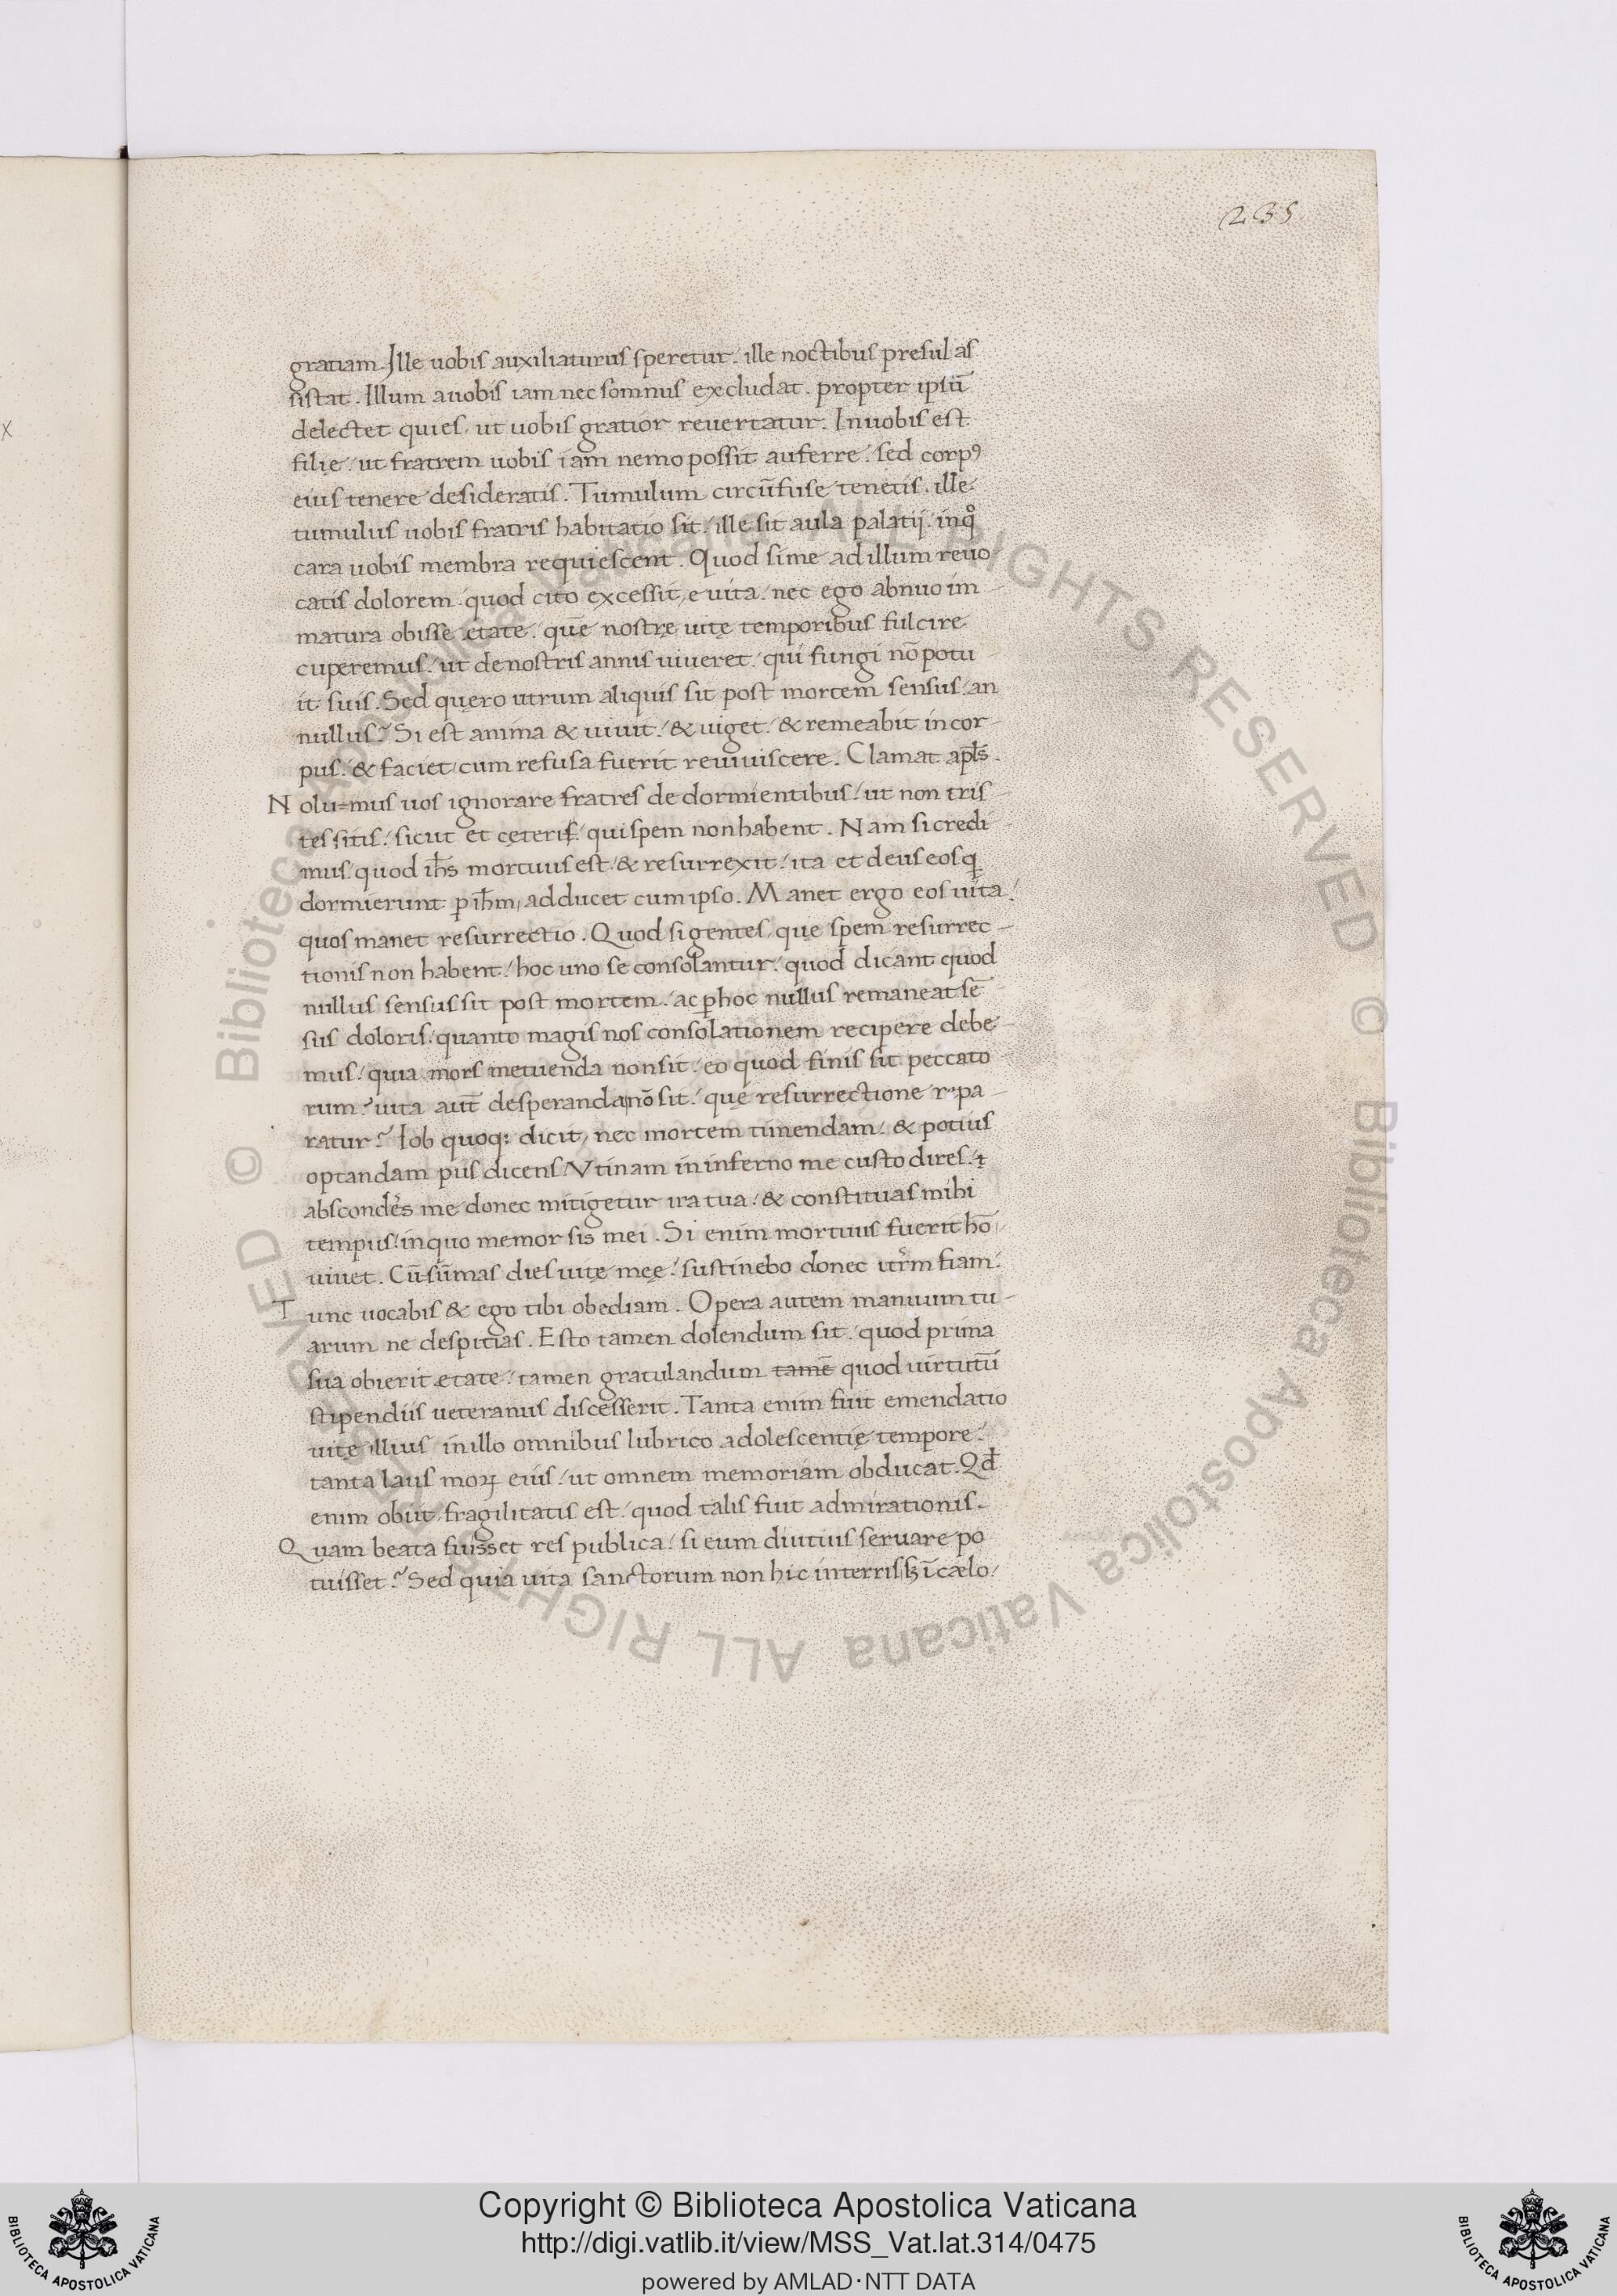 235
gratiam. Ille uobis auxiliaturus speretur. ille noctibus presul as
sistat. Illum auobis iam nec somnus excludat. propter ipsū
delectet quies. ut uobis gratior reuertatur. Inuobis est
filię. ut fratrem uobis iam nemo possit auferre. sed corpꝰ
eius tenere desideratis. Tumulum circūfuse tenetis. ille
tumulus uobis fratris habitatio sit. ille sit aula palatij. inqͦ
cara uobis membra requiescent. Quod sime ad illum reuo
catis dolorem quod cito excessit e uita. nec ego abnuo im
matura obisse ętate. quē nostrę uitę temporibus fulcire
cuperemus. ut denostris annis uiueret. qui fungi nō potu
it suis. Sed quęro utrum aliquis sit post mortem sensus. an
nullus? Si est anima & uiuit. & uiget. & remeabit in cor
pus. & faciet cum refusa fuerit reuiuiscere. Clamat apl̄s.
Nolumus uos ignorare fratres de dormientibus. ut non tris
tes sitis. sicut et cęteris. qui spem non habent. Nam si credi
mus quod ih̄s mortuus est. & resurrexit. ita et deus eos q
dormierunt ꝑ ih̄m, adducet cum ipso. Manet ergo eos uita.
quos manet resurrectio. Quod si gentes, quę spem resurrec
tionis non habent. hoc uno se consolantur. quod dicant quod
nullus sensus sit post mortem. ac ꝑhoc nullus remaneat sē
sus doloris. quanto magis nos consolationem recipere debe
mus. quia mors metuenda non sit. eo quod finis sit peccato
rum? uita aut̄ desperanda nō sit. quę resurrectione repa
ratur? Iob quoq; dicit, nec mortem timendam. & potius
optandam pıus dicens. Vtinam in inferno me custodires. ⁊
abscondēs me donec mitigetur ira tua. & constituas mihi
tempus. inquo memor sis mei. Si enim mortuus fuerit hō
uiuet. Cūsūmas dies uitę męę. sustinebo donec itr̄m fiam.
Tunc uocabis & ego tibi obediam. Opera autem manuum tu
arum ne despicias. Esto tamen dolendum sit. quod prima
sua obierit ętate. tamen gratulandum tamē quod uirtutū
stipendiis ueteranus discesserit. Tanta enim fuit emendatio
uitę illius in illo omnibus lubrico adolescentię tempore.
tanta laus moꝝ eius. ut omnem memoriam obducat. Qd̄
enim obiit fragilitatis est. quod talis fuit admirationis.
Quam beata fuisset res publica. si eum diutius seruare po
tuisset? Sed quia uita sanctorum non hic interris sꝫ ī cælo.
© Biblioteca Apostolica Vaticana ALL RIGHTS RESERVED © Biblioteca Apostolica Vaticana ALL RIGHTS RESERVED
BIBLIOTECA APOSTOLICA VATICANA
Copyright © Biblioteca Apostolica Vaticana
http://digi.vatlib.it/view/MSS_Vat.lat.314/0475
powered by AMLAD·NTT DATA
BIBLIOTECA APOSTOLICA VATICANA